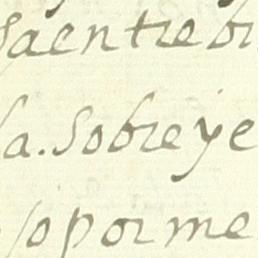 saentrebr
a. Sobre ye
so por me